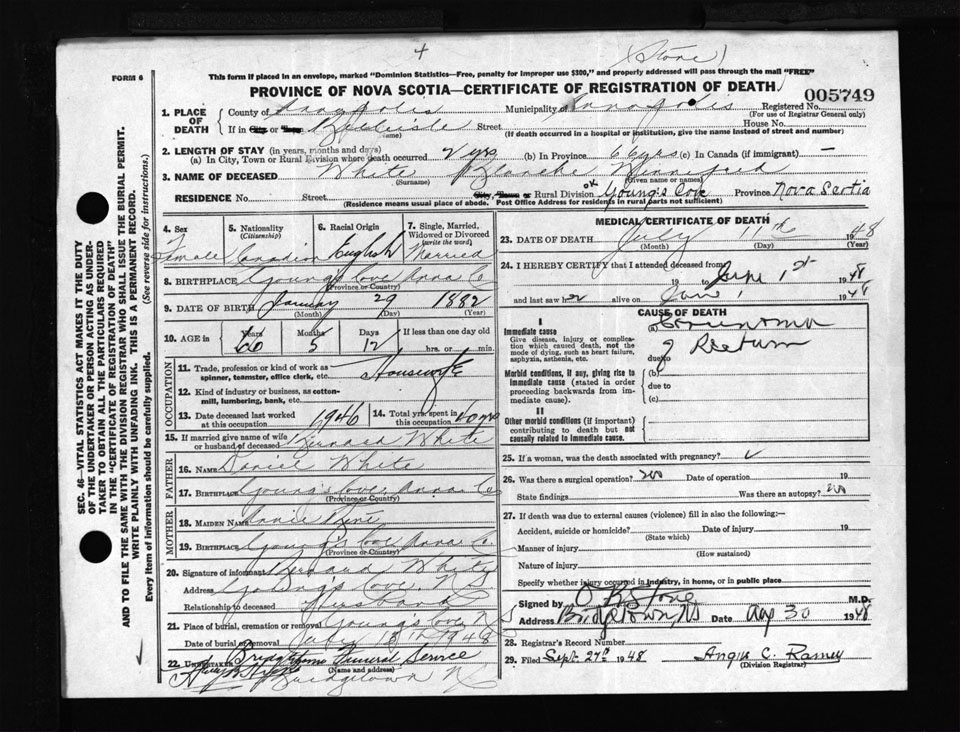 + (Stone)
FORM 6
This form if placed in an envelope, marked "Dominion Statistics—Free, penalty for improper use $300," and properly addressed will pass through the mail "FREE"
PROVINCE OF NOVA SCOTIA—CERTIFICATE OF REGISTRATION OF DEATH
005749
1. PLACE OF DEATH
County of Annapolis Municipality of Annapolis Registered No.
(For use of Registrar General only)
If in City or Town Belleisle Street House No.
(Name) (If death occurred in a hospital or institution, give the name instead of street and number)
2. LENGTH OF STAY (in years, months and days)
(a) In City, Town or Rural Division where death occurred 2 yrs (b) In Province 66 yrs (c) In Canada (if immigrant) —
3. NAME OF DECEASED White Blanche Winnifred
(Surname) (Given name or names)
RESIDENCE No. Street City, Town or Rural Division Young's Cove Province Nova Scotia
(Residence means usual place of abode. Post Office Address for residents in rural parts not sufficient)
4. Sex Female
5. Nationality (Citizenship) Canadian
6. Racial Origin English
7. Single, Married, Widowed or Divorced (write the word) Married
8. BIRTHPLACE Young's Cove Anna Co
(Province or Country)
9. DATE OF BIRTH January 29 1882
(Month) (Day) (Year)
10. AGE in Years 66 Months 5 Days 12 If less than one day old
hrs. or min.
OCCUPATION
11. Trade, profession or kind of work as spinner, teamster, office clerk, etc. Housewife
12. Kind of industry or business, as cotton-mill, lumbering, bank, etc.
13. Date deceased last worked at this occupation 1946
14. Total yrs. spent in this occupation 40 yrs
15. If married give name of wife or husband of deceased Bernard White
FATHER
16. NAME Daniel White
17. BIRTHPLACE Young's Cove Anna Co
(Province or Country)
MOTHER
18. MAIDEN NAME Annie
19. BIRTHPLACE Young's Cove Anna C.
(Province or Country)
20. Signature of informant Bernard White
Address Young's Cove N S
Relationship to deceased Husband
21. Place of burial, cremation or removal Young's Cove N S
Date of burial or removal July 13th 1948
22. UNDERTAKER Bridgetown Funeral Service
(Name and address)
Bridgetown N S
MEDICAL CERTIFICATE OF DEATH
23. DATE OF DEATH July 11th 1948
(Month) (Day) (Year)
24. I HEREBY CERTIFY that I attended deceased from
19 to 1st 1948
and last saw her alive on 1 1948
CAUSE OF DEATH
I
Immediate cause
Give disease, injury or complication which caused death, not the mode of dying, such as heart failure, asphyxia, asthenia, etc.
(a) Carcinoma
of Rectum
due to
(b)
Morbid conditions, if any, giving rise to immediate cause (stated in order proceeding backwards from immediate cause).
due to
(c)
II
Other morbid conditions (if important) contributing to death but not causally related to immediate cause.
25. If a woman, was the death associated with pregnancy?
26. Was there a surgical operation? no Date of operation 19
State findings Was there an autopsy? no
27. If death was due to external causes (violence) fill in also the following:—
Accident, suicide or homicide? Date of injury 19
(State which)
Manner of injury
(How sustained)
Nature of injury
Specify whether injury occurred in industry, in home, or in public place
Signed by O R Stone M.D.
Address Bridgetown, NS Date Aug 30 1948
28. Registrar's Record Number
29. Filed Sept. 27th 1948 Angus C. Ramey
(Division Registrar)
SEC. 46—VITAL STATISTICS ACT MAKES IT THE DUTY
OF THE UNDERTAKER OR PERSON ACTING AS UNDER-
TAKER TO OBTAIN ALL THE PARTICULARS REQUIRED
IN THE "CERTIFICATE OF REGISTRATION OF DEATH"
AND TO FILE THE SAME WITH THE DIVISION REGISTRAR WHO SHALL ISSUE THE BURIAL PERMIT.
WRITE PLAINLY WITH UNFADING INK. THIS IS A PERMANENT RECORD.
Every item of information should be carefully supplied. (See reverse side for instructions.)